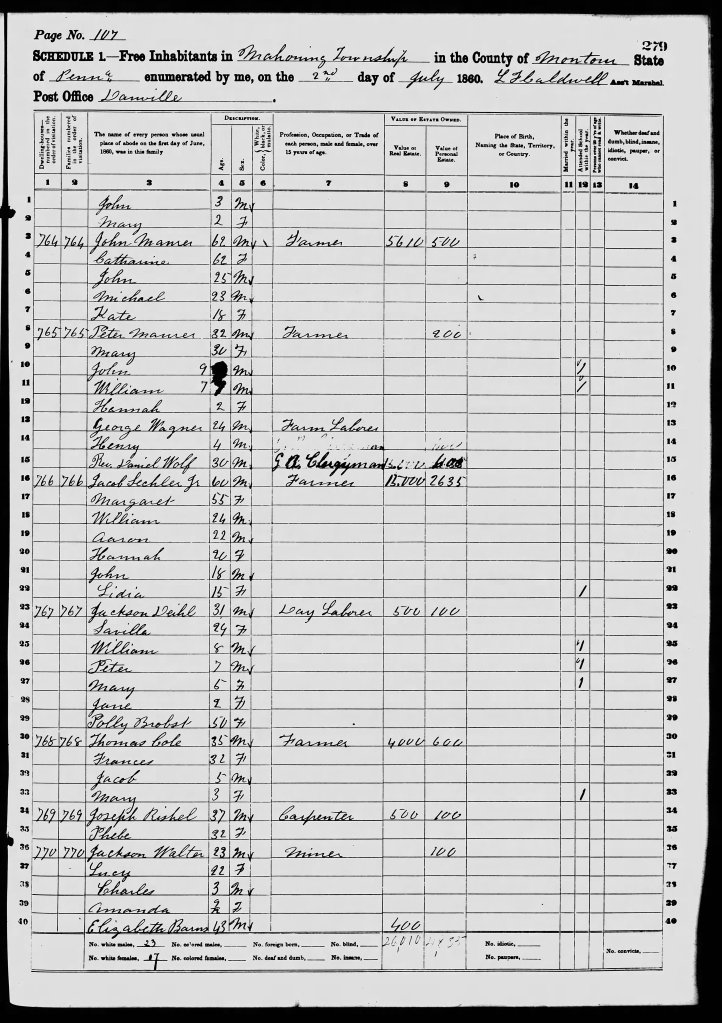 Page No. 107
279
SCHEDULE 1.—Free Inhabitants in Mahoning Township in the County of Montour State
of Penna enumerated by me, on the 2nd day of July 1860. L F Caldwell Ass't Marshal.
Post Office Danville
Dwelling-houses numbered in the order of visitation. Families numbered in the order of visitation. The name of every person whose usual place of abode on the first day of June, 1860, was in this family DESCRIPTION. Age. Sex. Color, White, black, or mulatto. Profession, Occupation, or Trade of each person, male and female, over 15 years of age. VALUE OF ESTATE OWNED. Value of Real Estate. Value of Personal Estate. Place of Birth, Naming the State, Territory, or Country. Married within the year. Attended School within the year. Persons over 20 y'rs of age who cannot read & write. Whether deaf and dumb, blind, insane, idiotic, pauper, or convict.
1 2 3 4 5 6 7 8 9 10 11 12 13 14
1 John 3 M 1
2 Mary 2 F 2
3 764 764 John Maurer 62 M Farmer 5610 500 3
4 Catharine 62 F 4
5 John 25 M 5
6 Michael 23 M 6
7 Kate 18 F 7
8 765 765 Peter Maurer 32 M Farmer 200 8
9 Mary 30 F 9
10 John 9 M / 10
11 William 7 M / 11
12 Hannah 2 F 12
13 George Wagner 24 M Farm Laborer 13
14 Henry 4 M 14
15 Rev. Daniel Wolf 30 M G R Clergyman 15
16 766 766 Jacob Sechler Jr 60 M Farmer 12.000 2635 16
17 Margaret 55 F 17
18 William 24 M 18
19 Aaron 22 M 19
20 Hannah 20 F 20
21 John 18 M 21
22 Lidia 15 F / 22
23 767 767 Jackson Deihl 31 M Day Laborer 500 100 23
24 Savilla 29 F 24
25 William 8 M 1 25
26 Peter 7 M 1 26
27 Mary 5 F 1 27
28 Jane 2 F 28
29 Polly Brobst 50 F 29
30 768 768 Thomas Cole 35 M Farmer 4000 600 30
31 Frances 32 F 31
32 Jacob 5 M 32
33 Mary 3 F 1 33
34 769 769 Joseph Rishel 37 M Carpenter 500 100 34
35 Phebe 32 F 35
36 770 770 Jackson Walter 23 M Miner 100 36
37 Lucy 22 F 37
38 Charles 3 M 38
39 Amanda F 39
40 Elizabeth 43 M 400 40
No. white males, 23 No. colored males, No. foreign born, No. blind, No. idiotic, No. convicts,
No. white females, 17 No. colored females, No. deaf and dumb, No. insane, No. paupers,